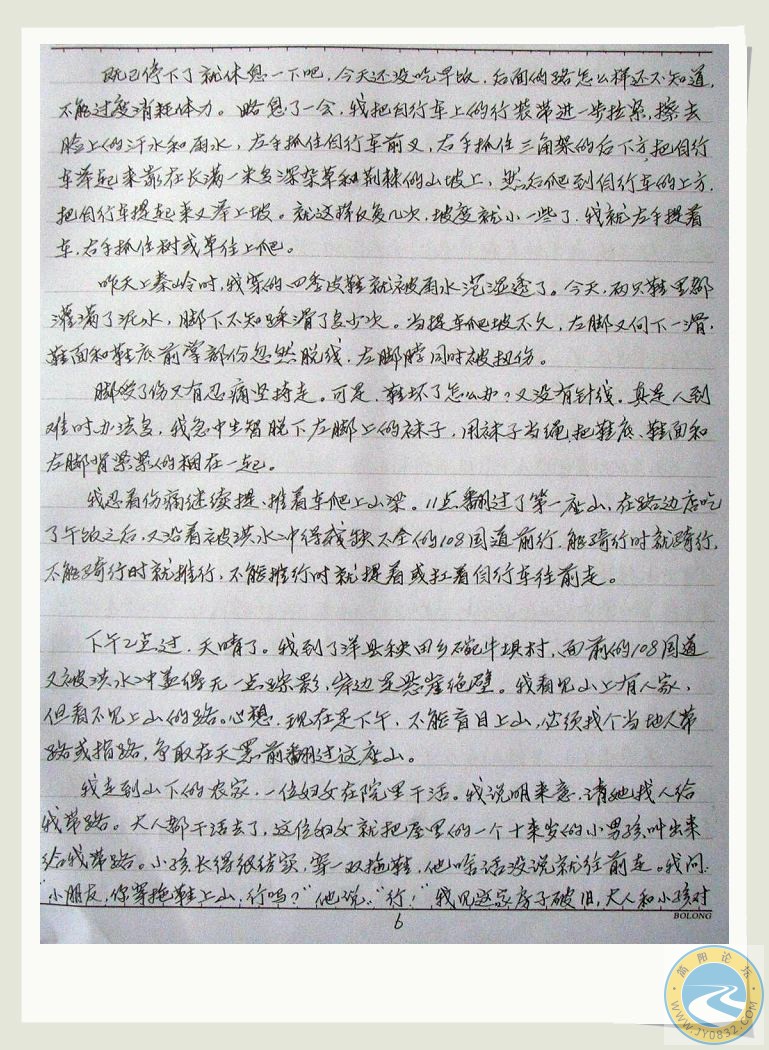 既已停下了就休息一下吧，今天还没吃早饭，后面的路怎么样还不知道，
不能过度消耗体力。略息了一会，我把自行车上的行装带进一步拉紧，擦去
脸上的汗水和雨水，左手抓住自行车前叉，右手抓住三角架的后下方，把自行
车举起来靠在长满一米多深杂草和荆棘的山坡上，然后爬到自行车的上方，
把自行车提起来又举上坡。就这样反复几次，坡度就小一些了，我就左手提着
车，右手抓住树或草往上爬。
昨天上秦岭时，我穿的四季皮鞋就被雨水泡湿透了。今天，两只鞋里都
灌满了泥水，脚下不知踩滑了多少次。当提车爬坡不久，左脚又向下一滑，
鞋面和鞋底前掌部份忽然脱线，左脚脖同时被扭伤。
脚受了伤只有忍痛坚持走。可是，鞋坏了怎么办？又没有针线。真是人到
难时办法多，我急中生智脱下左脚上的袜子，用袜子当绳，把鞋底、鞋面和
左脚背紧紧的捆在一起。
我忍着伤痛继续提、推着车爬上山梁。11点翻过了第一座山，在路边店吃
了午饭之后，又沿着被洪水冲得残缺不全的108国道前行，能骑行时就骑行，
不能骑行时就推行，不能推行时就提着或扛着自行车往前走。
下午2点过，天晴了。我到了洋县秧田乡碗牛坝村，面前的108国道
又被洪水冲盖得无一点踪影，岸边是悬崖绝壁。我看见山上有人家，
但看不见上山的路。心想，现在是下午，不能盲目上山，必须找个当地人带
路或指路，争取在天黑前翻过这座山。
我走到山下的农家，一位妇女在院里干活。我说明来意，请她找人给
我带路。大人都干活去了，这位妇女就把屋里的一个十来岁的小男孩叫出来
给我带路。小孩长得很结实，穿一双拖鞋，他啥话没说就往前走。我问：
“小朋友，你穿拖鞋上山，行吗？”他说：“行！”我见这家房子破旧，大人和小孩对
BOLONG
6
简阳论坛
WWW.JY0832.COM